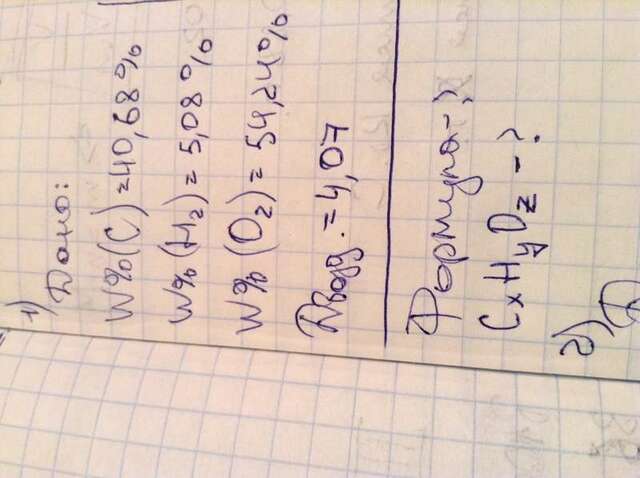 1) Дано:
W%(C)=40,68%
W%(H₂)=5,08%
W%(O₂)=54,24%
Dвозд.=4,07
Формула-?
CxHyOz-?
2)